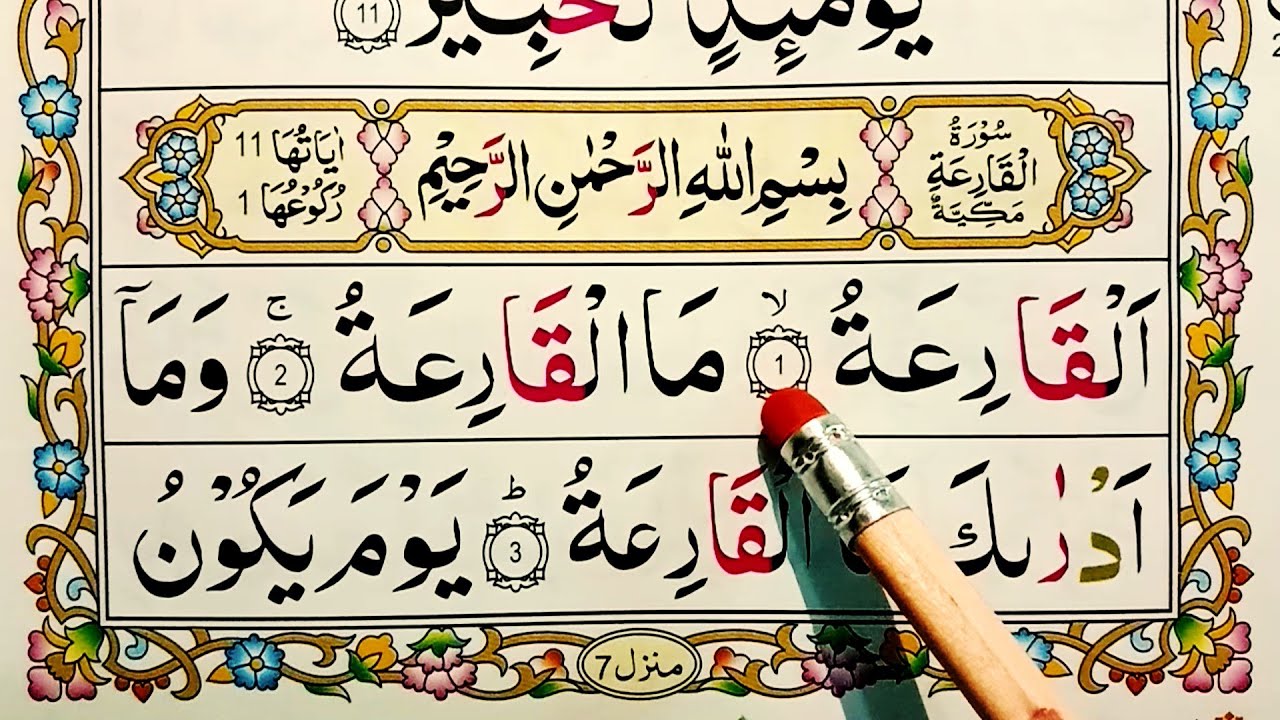 يَوْمَئِذٍ لَّخَبِيْرٌ 11
سُوْرَةُ الْقَارِعَةِ مَكِّيَّةٌ
بِسْمِ اللهِ الرَّحْمٰنِ الرَّحِيْمِ
اٰيَاتُهَا 11
رُكُوْعُهَا 1
اَلْقَارِعَةُ ۙ 1 مَا الْقَارِعَةُ ۚ 2 وَمَاۤ
اَدْرٰىكَ الْقَارِعَةُ ؕ 3 يَوْمَ يَكُوْنُ
منزل 7